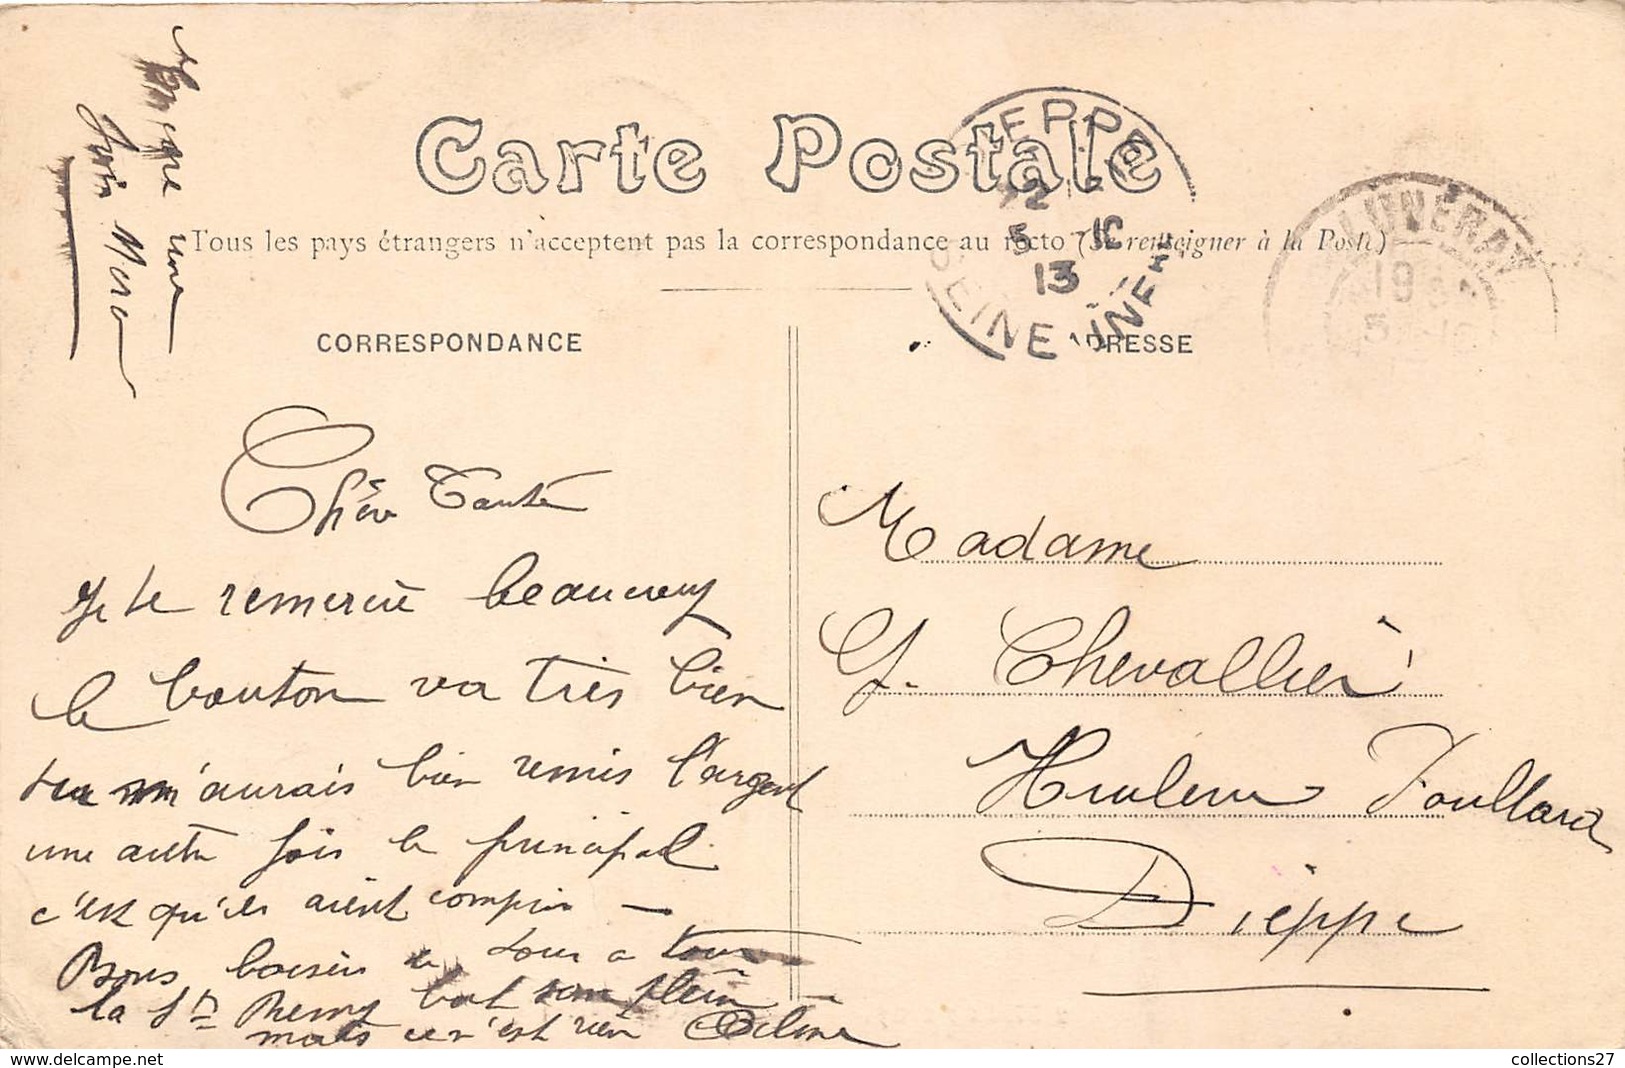 Carte Postale
Tous les pays étrangers n'acceptent pas la correspondance au recto (Se renseigner à la Poste)
CORRESPONDANCE
ADRESSE
DIEPPE
12
5 -10
13
SEINE-INFRE
LUNERAY
19
une
Chère Tante
Je te remercie beaucoup
le bouton va très bien
tu m'aurais bien remis l'argent
une autre fois le principal
c'est qu'ils aient compris —
Bons baisers de tous a tous
la St Remy bat son plein
mais ce n'est rien
Madame
Chevallier
Dieppe
collections27